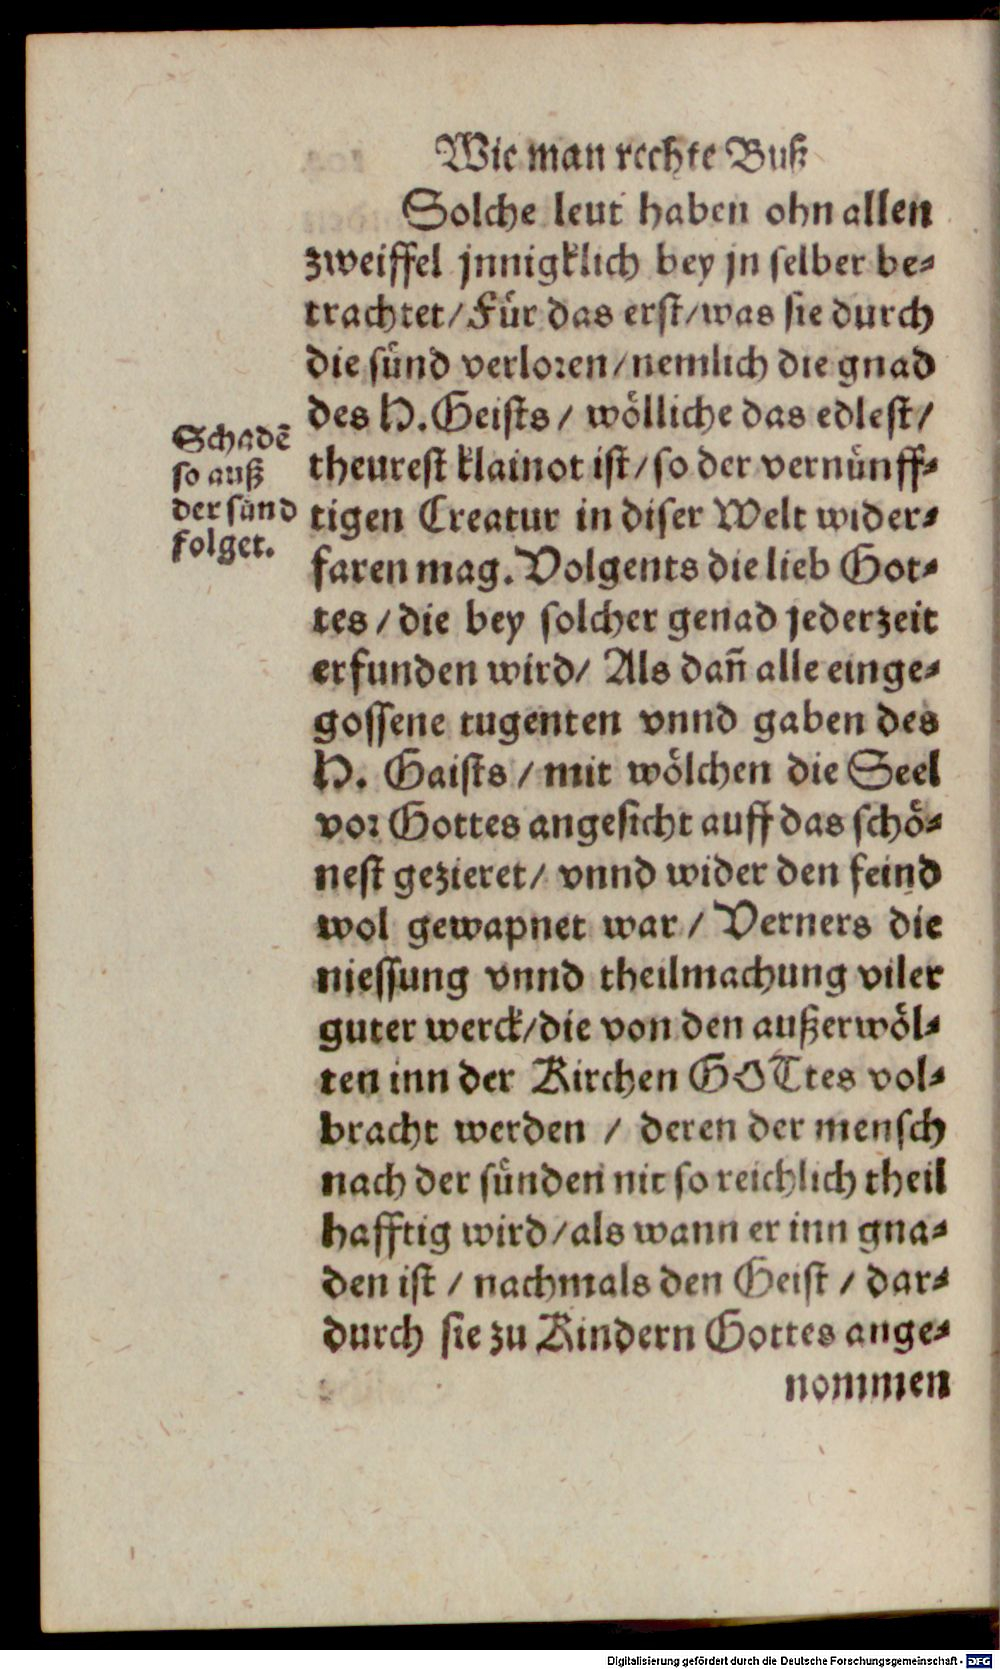 Wie man rechte Buß
Solche leut haben ohn allen
zweiffel jnnigklich bey jn selber be-
trachtet/Für das erst/was sie durch
die sünd verloren/nemlich die gnad
des H. Geists/ wölliche das edlest/
theurest klainot ist/so der vernünff-
tigen Creatur in diser Welt wider-
faren mag. Volgents die lieb Got-
tes/die bey solcher genad jederzeit
erfunden wird/ Als dañ alle einge-
gossene tugenten vnnd gaben des
H. Gaists/mit wölchen die Seel
vor Gottes angesicht auff das schö-
nest gezieret/ vnnd wider den feind
wol gewapnet war/ Verners die
niessung vnnd theilmachung viler
guter werck/die von den außerwöl-
ten inn der Kirchen GOTtes vol-
bracht werden / deren der mensch
nach der sünden nit so reichlich theil
hafftig wird/als wann er inn gna-
den ist / nachmals den Geist / dar-
durch sie zu Kindern Gottes ange-
nommen
Schadē
so auß
der sünd
folget.
Digitalisierung gefördert durch die Deutsche Forschungsgemeinschaft - DFG